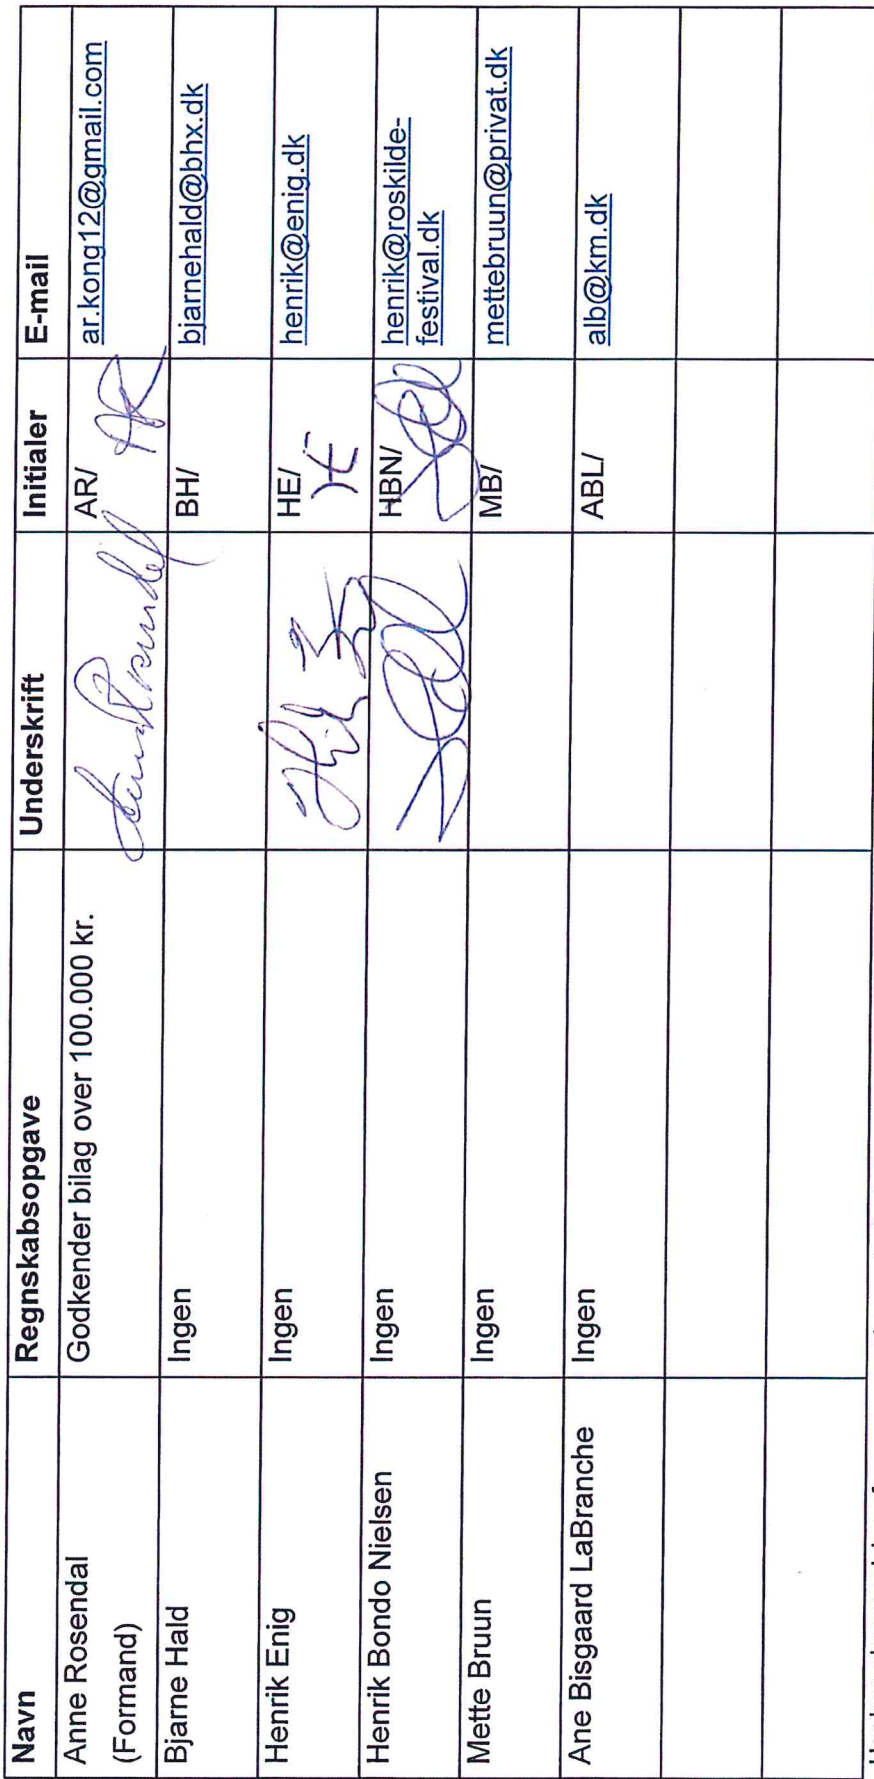 Navn Regnskabsopgave Underskrift Initialer E-mail
Anne Rosendal Godkender bilag over 100.000 kr. AR/ AR ar.kong12@gmail.com
(Formand)
Bjarne Hald Ingen BH/ bjarnehald@bhx.dk
Henrik Enig Ingen HE/ HE henrik@enig.dk
Henrik Bondo Nielsen Ingen HBN/ henrik@roskilde-
festival.dk
Mette Bruun Ingen MB/ mettebruun@privat.dk
Ane Bisgaard LaBranche Ingen ABL/ alb@km.dk